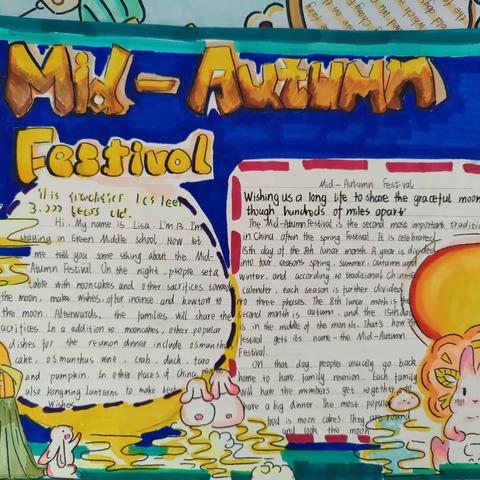 Mid-Autumn
Festival
It is practice I cs leen
3.000 tears old.
Hi. My name is Lisa. I'm 13. I'm
stauing in Green Middle school. Now let
me tell you some thing about the Mid-
Atumn Festival. On the night, people set a
table with mooncakes and other sacrifices toward
the moon, make wishes, offer incense and kowtow to
the moon. Afterwards, the families will share the
sacrifices. In a addition to mooncakes, other popular
dishes for the reunion dinner include osmanthus
cake, osmanthus wine, crab, duck, taro
and pumpkin. In other places of China people
also kongming Lanterns to make best
wishes
Mid-Autumn Festival
Wishing us a long life to share the graceful moon
though hundreds of miles apart
The Mid-Autumn Festival is the second most traditio
in China after the spring Festival. It is celebrated
15th day of the 8th lunar month. A year is divided
into four seasons spring, summer, autumn and
winter, and according to traditional Chinese
calender, each season is further divided
into three phases. The 8th lunar month is the
second month is autumn, and the 15th day
is in the middle of the month. That's how the
festival gets its name - the Mid-Autumn
Festival.
On that day people usually go back
home to have family reunion. Each family
will have the members get together to
have a big dinner. The most popular
food is moon cakes. They are round
and look the moon